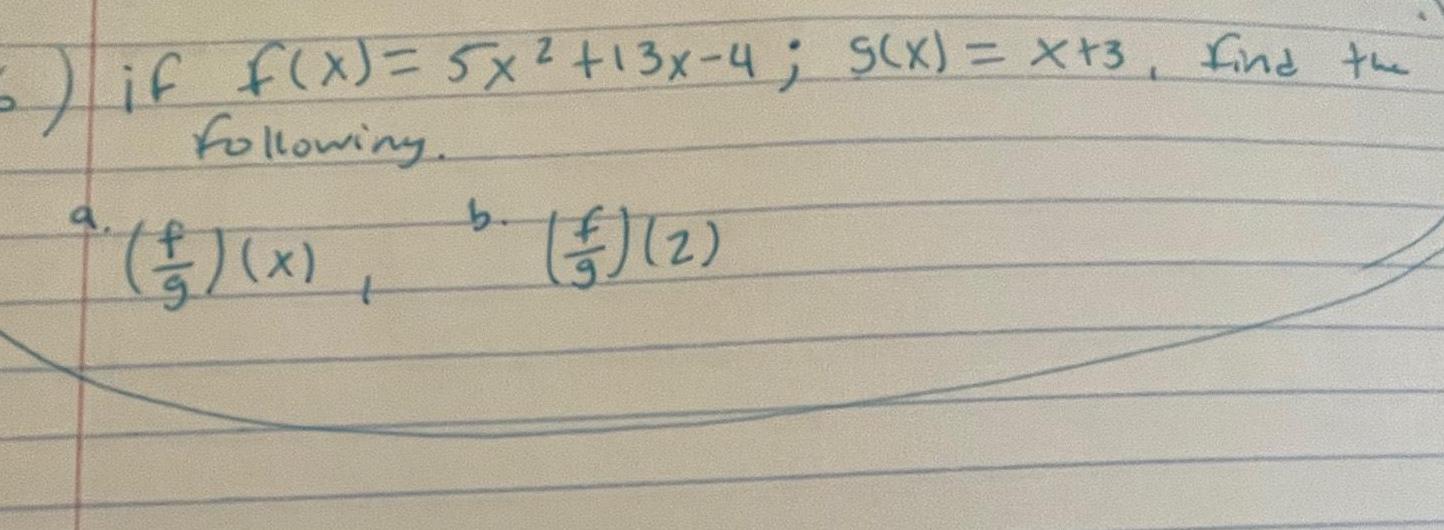 ) if f(x) = 5x² + 13x - 4 ; g(x) = x + 3, find the
following.
a. (f/g)(x), b. (f/g)(2)